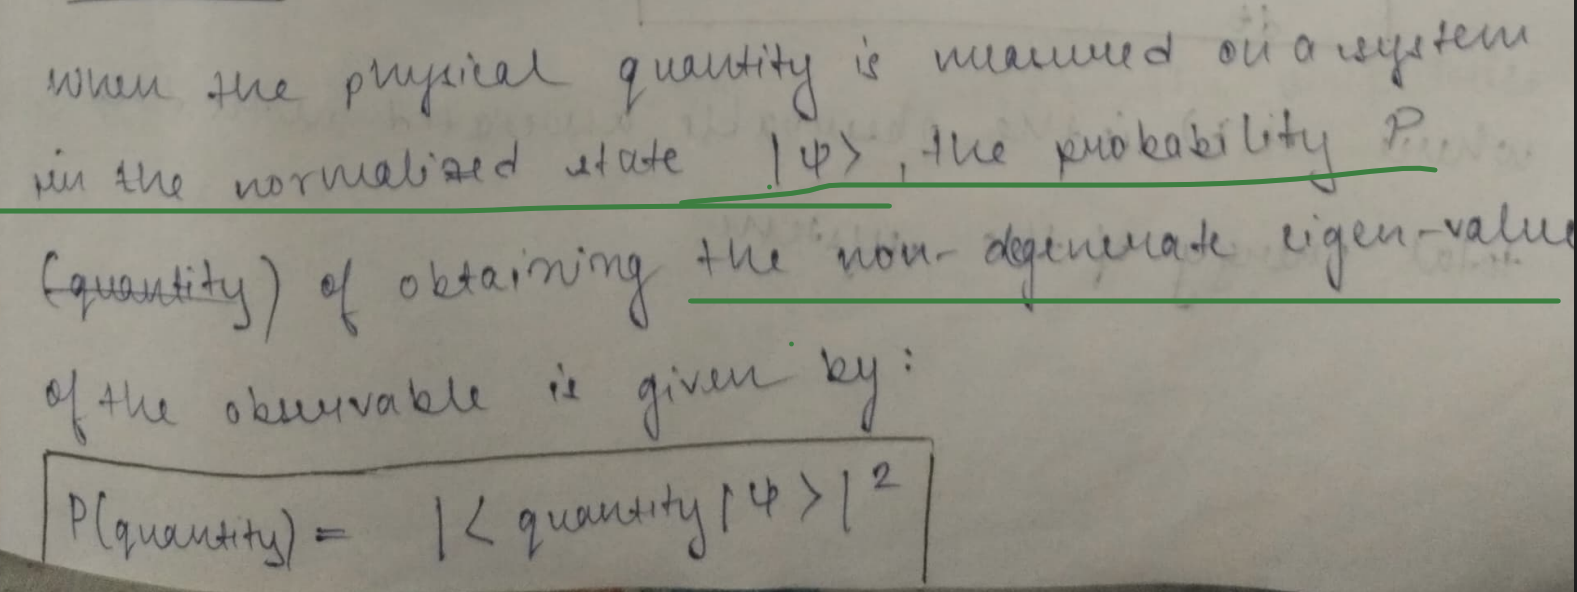 when the physical quantity is measured on a system
in the normalized state |ψ>, the probability P
(quantity) of obtaining the non-degenerate eigen-value
of the observable is given by:
P(quantity) = |<quantity|ψ>|²